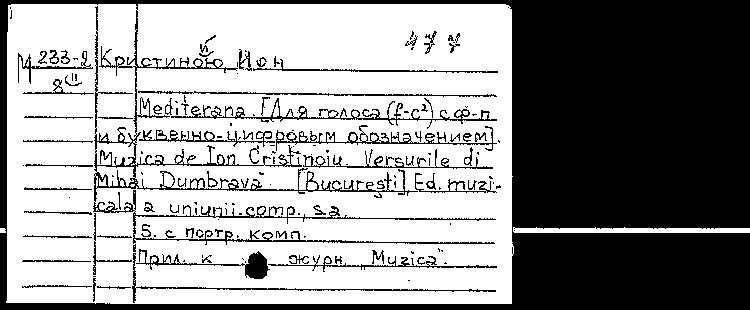 477
М 233-2 Кристиною, Ион
8 II й
Mediterana. [Для голоса (f-c²) с ф-п
и буквенно-цифровым обозначением].
Muzica de Ion Cristinoiu. Versurile di
Mihai Dumbravă. [Bucureşti], Ed. muzi-
cala a uniunii comp., s.a.
5. с портр. комп.
Прил. к журн. „Muzica".